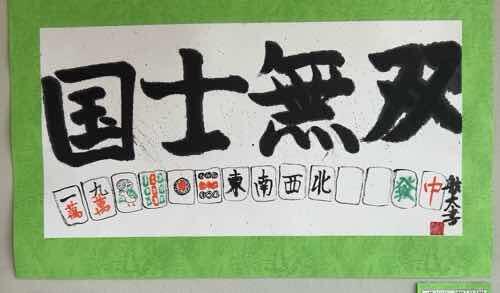 国士無双
一萬 九萬 東 南 西 北 發 中